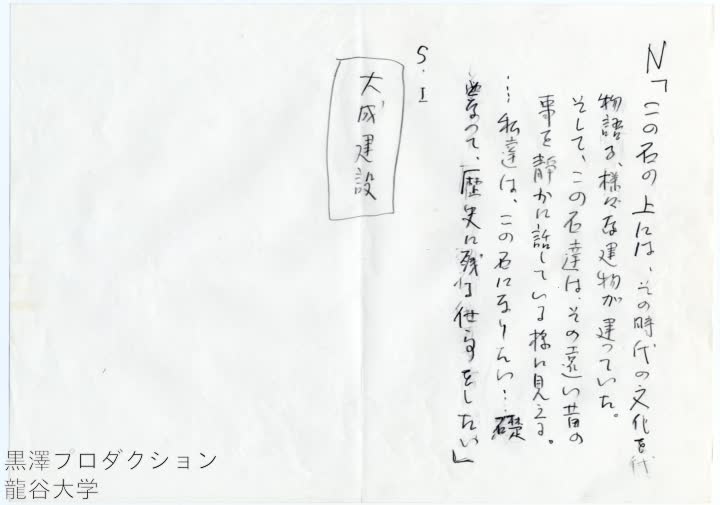 N「この石の上には、その時代の文化を
物語る、様々な建物が建っていた。
そして、この石達は、その遠い昔の
事を静かに話している様に見える。
…私達は、この石になりたい…礎
となって、歴史に残る仕事をしたい」
S・I
大成建設
黒澤プロダクション
龍谷大学